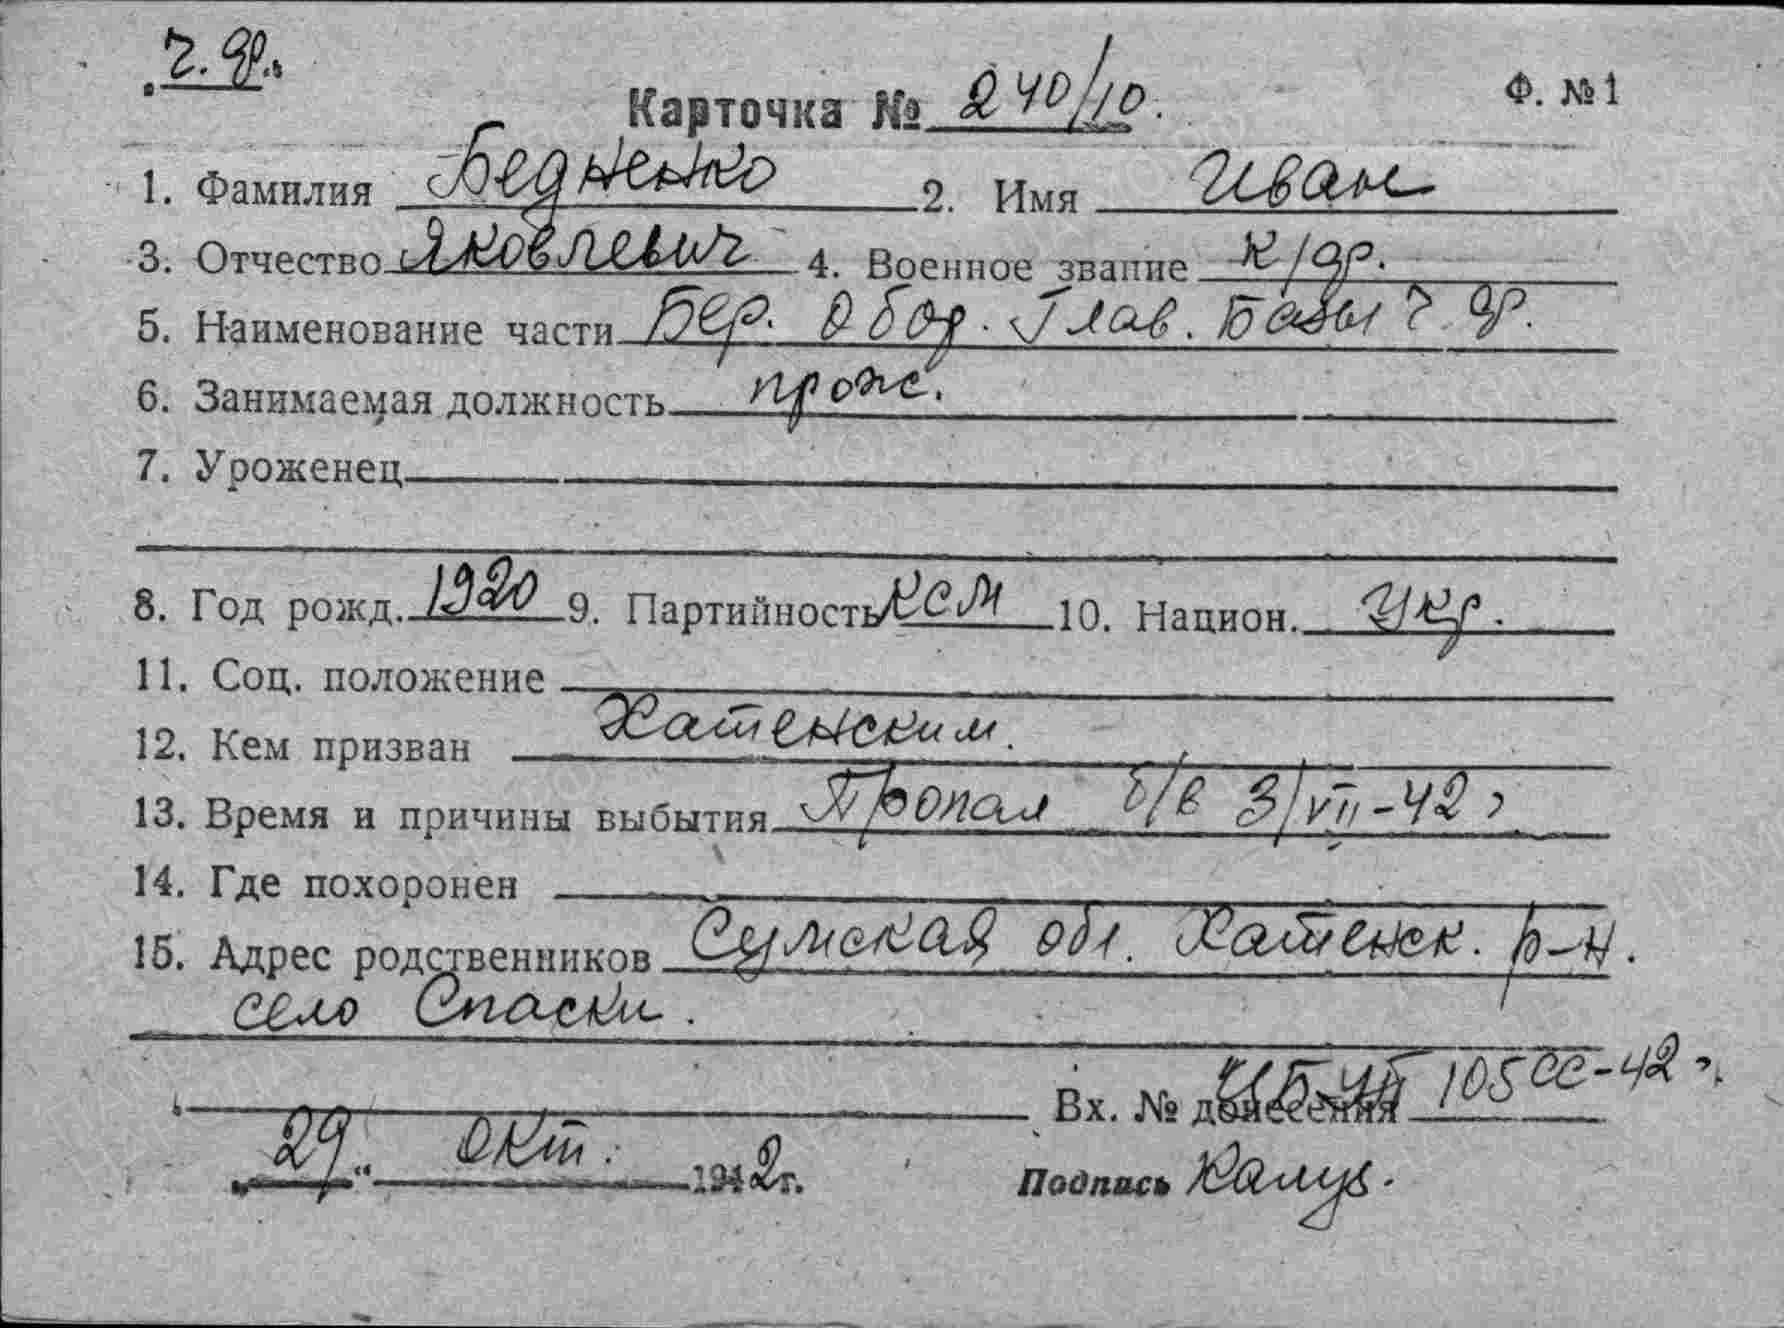 Ч. Ф.
Карточка № 240/10. Ф. №1
1. Фамилия Бедненко 2. Имя Иван
3. Отчество Яковлевич 4. Военное звание к/фр.
5. Наименование части Бер. Обор. Глав. Базы Ч. Ф.
6. Занимаемая должность прож.
7. Уроженец
8. Год рожд. 1920 9. Партийность КСМ 10. Национ. Укр.
11. Соц. положение
12. Кем призван Хатенским.
13. Время и причины выбытия Пропал б/в 3/VII-42 г
14. Где похоронен
15. Адрес родственников Сумская обл. Хатенск. р-н.
село Спаски.
Вх. № донесения 105сс-42 г.
„29“ окт. 1942 г. Подпись